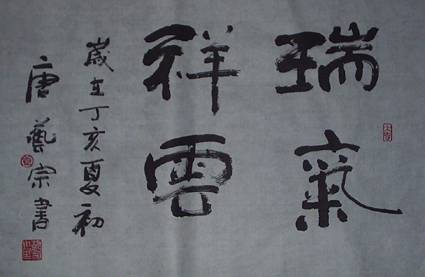 瑞氣
祥雲
歲在丁亥夏初
唐藝宗書